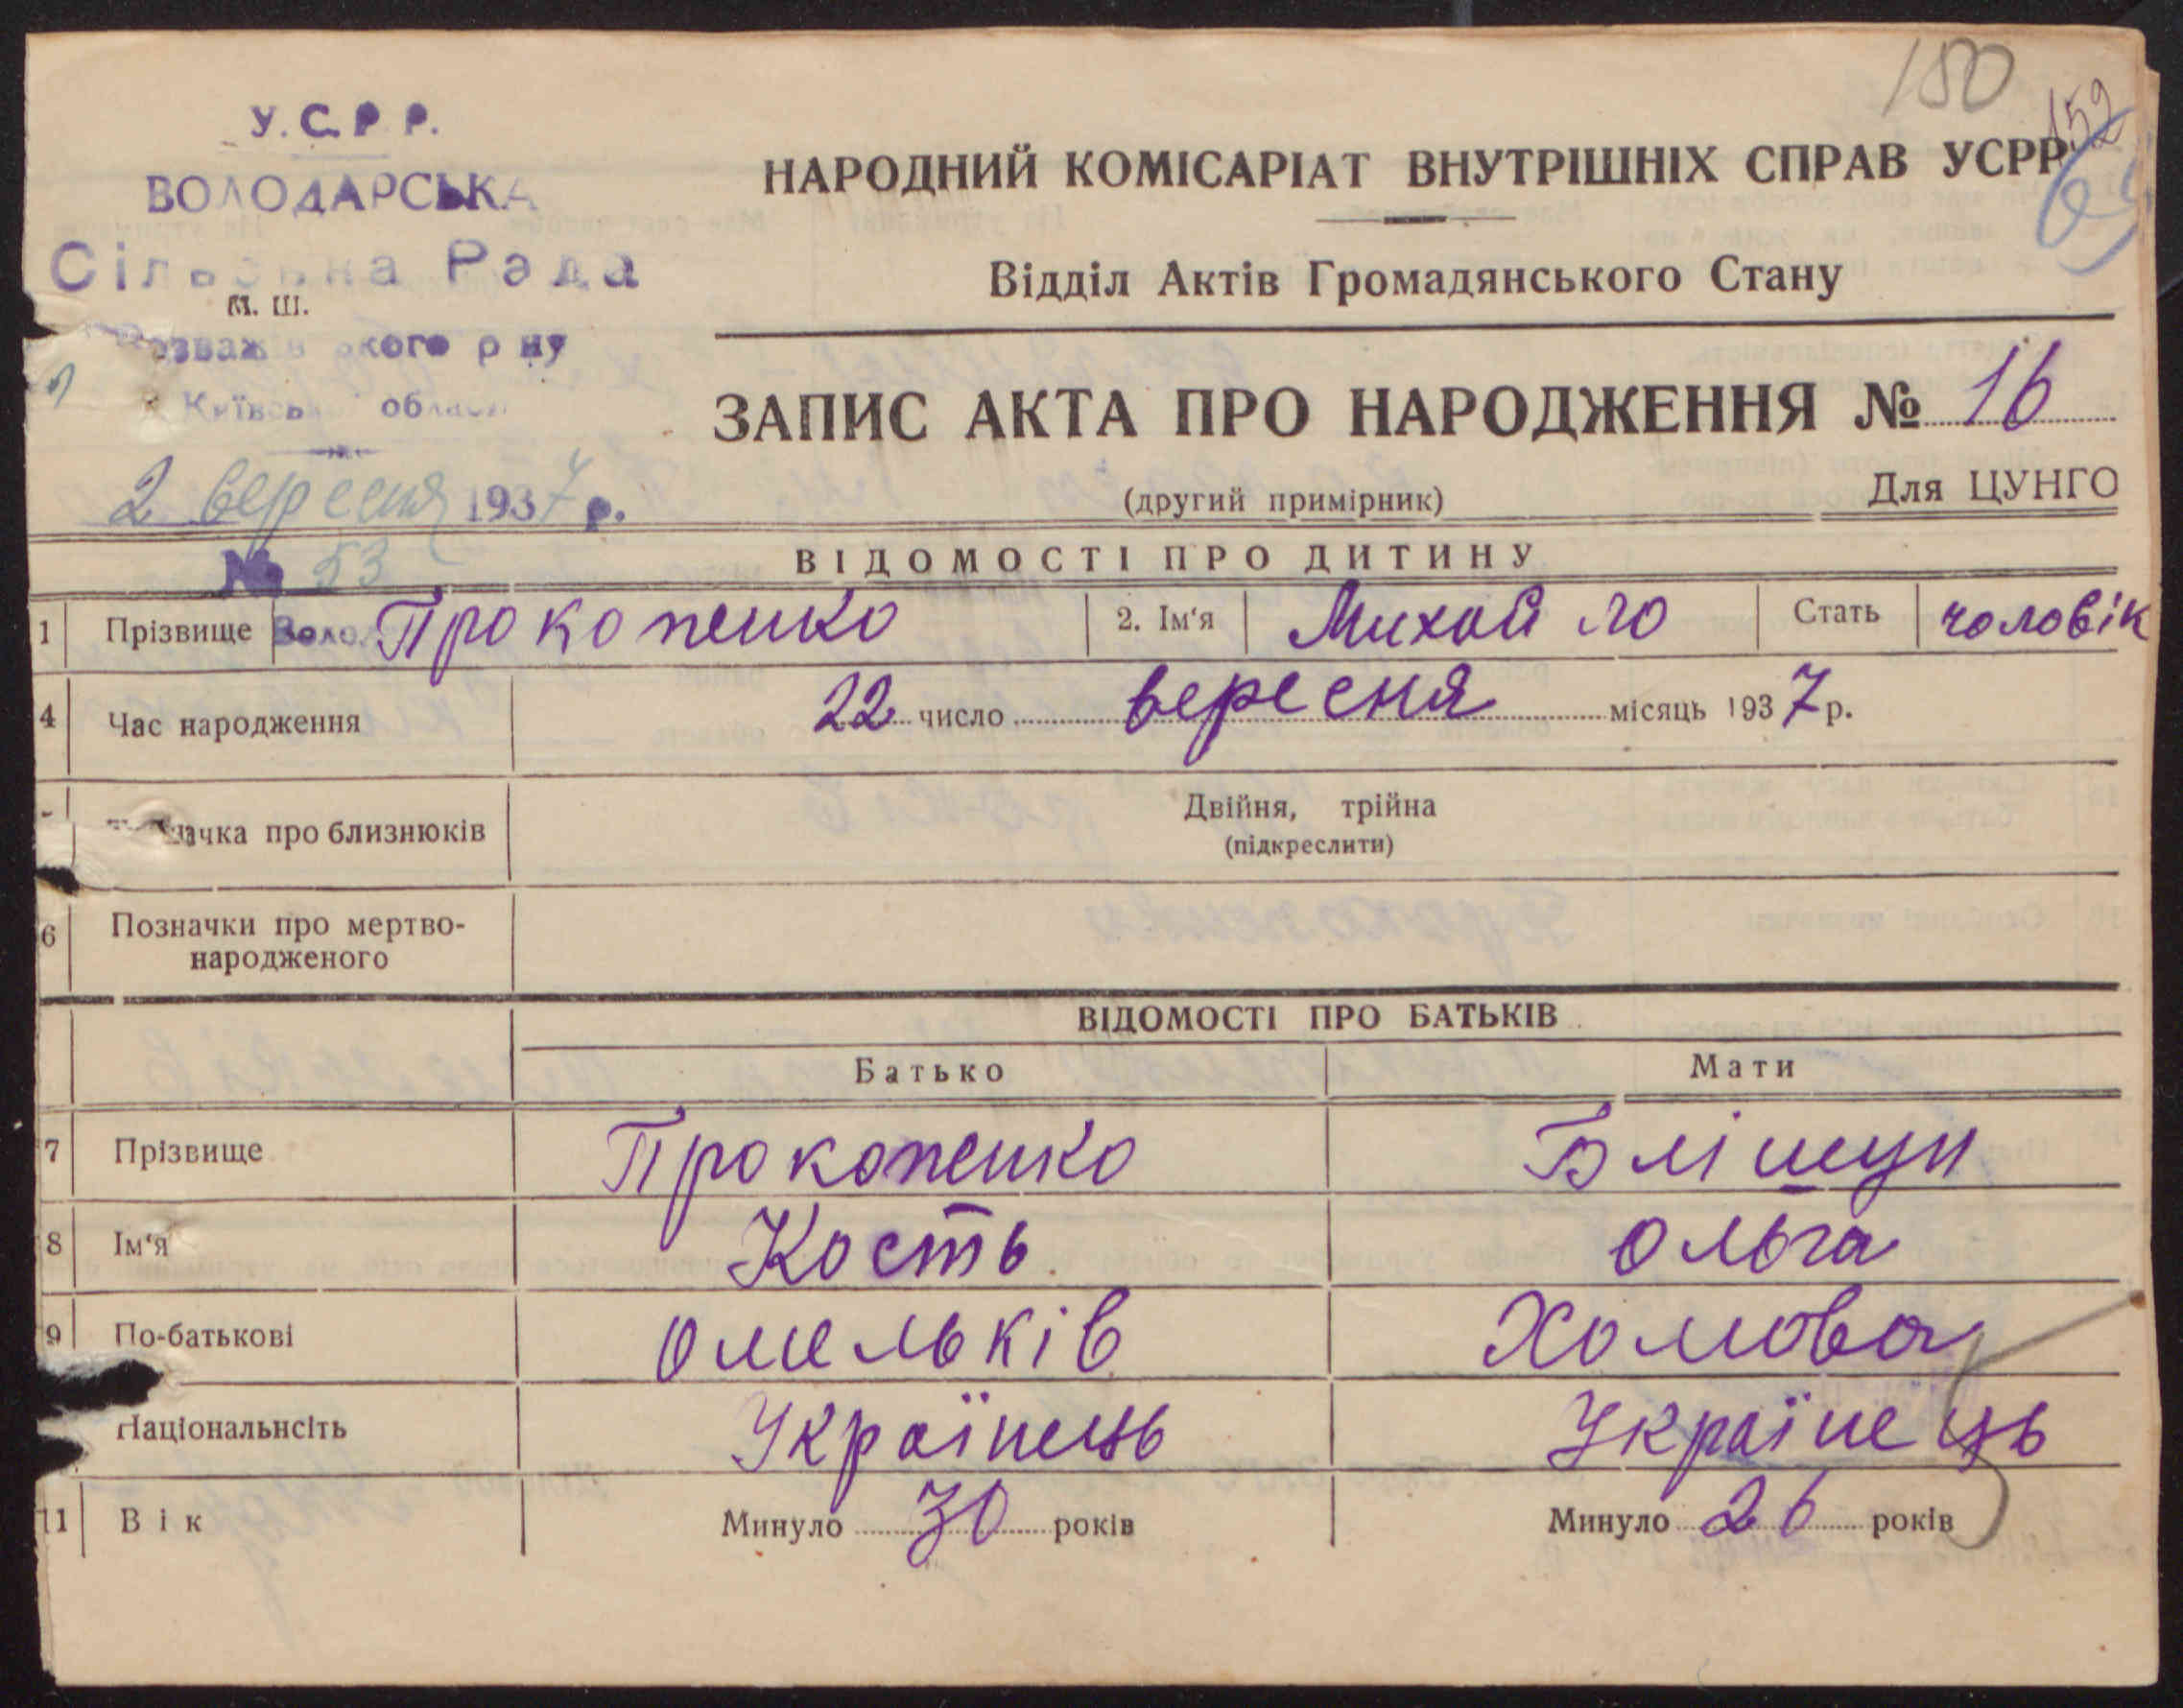 180
152
У.С.Р.Р.
ВОЛОДАРСЬКА
Сільська Рада
М. Ш.
кого р ну
Київськ обласи
2 вересня 1937 р.
№ 53
НАРОДНИЙ КОМІСАРІАТ ВНУТРІШНІХ СПРАВ УСРР
Відділ Актів Громадянського Стану
ЗАПИС АКТА ПРО НАРОДЖЕННЯ № 16
(другий примірник) Для ЦУНГО
ВІДОМОСТІ ПРО ДИТИНУ
1 Прізвище Прокопенко 2. Ім'я Михайло Стать чоловік
4 Час народження 22 число вересня місяць 1937 р.
ачка про близнюків Двійня, трійна
(підкреслити)
6 Позначки про мертво-
народженого
ВІДОМОСТІ ПРО БАТЬКІВ
Батько Мати
7 Прізвище Прокопенко Блішун
8 Ім'я Кость Ольга
9 По-батькові Омельків Хомова
Національнсіть Українець Українець
11 Вік Минуло 30 років Минуло 26 років